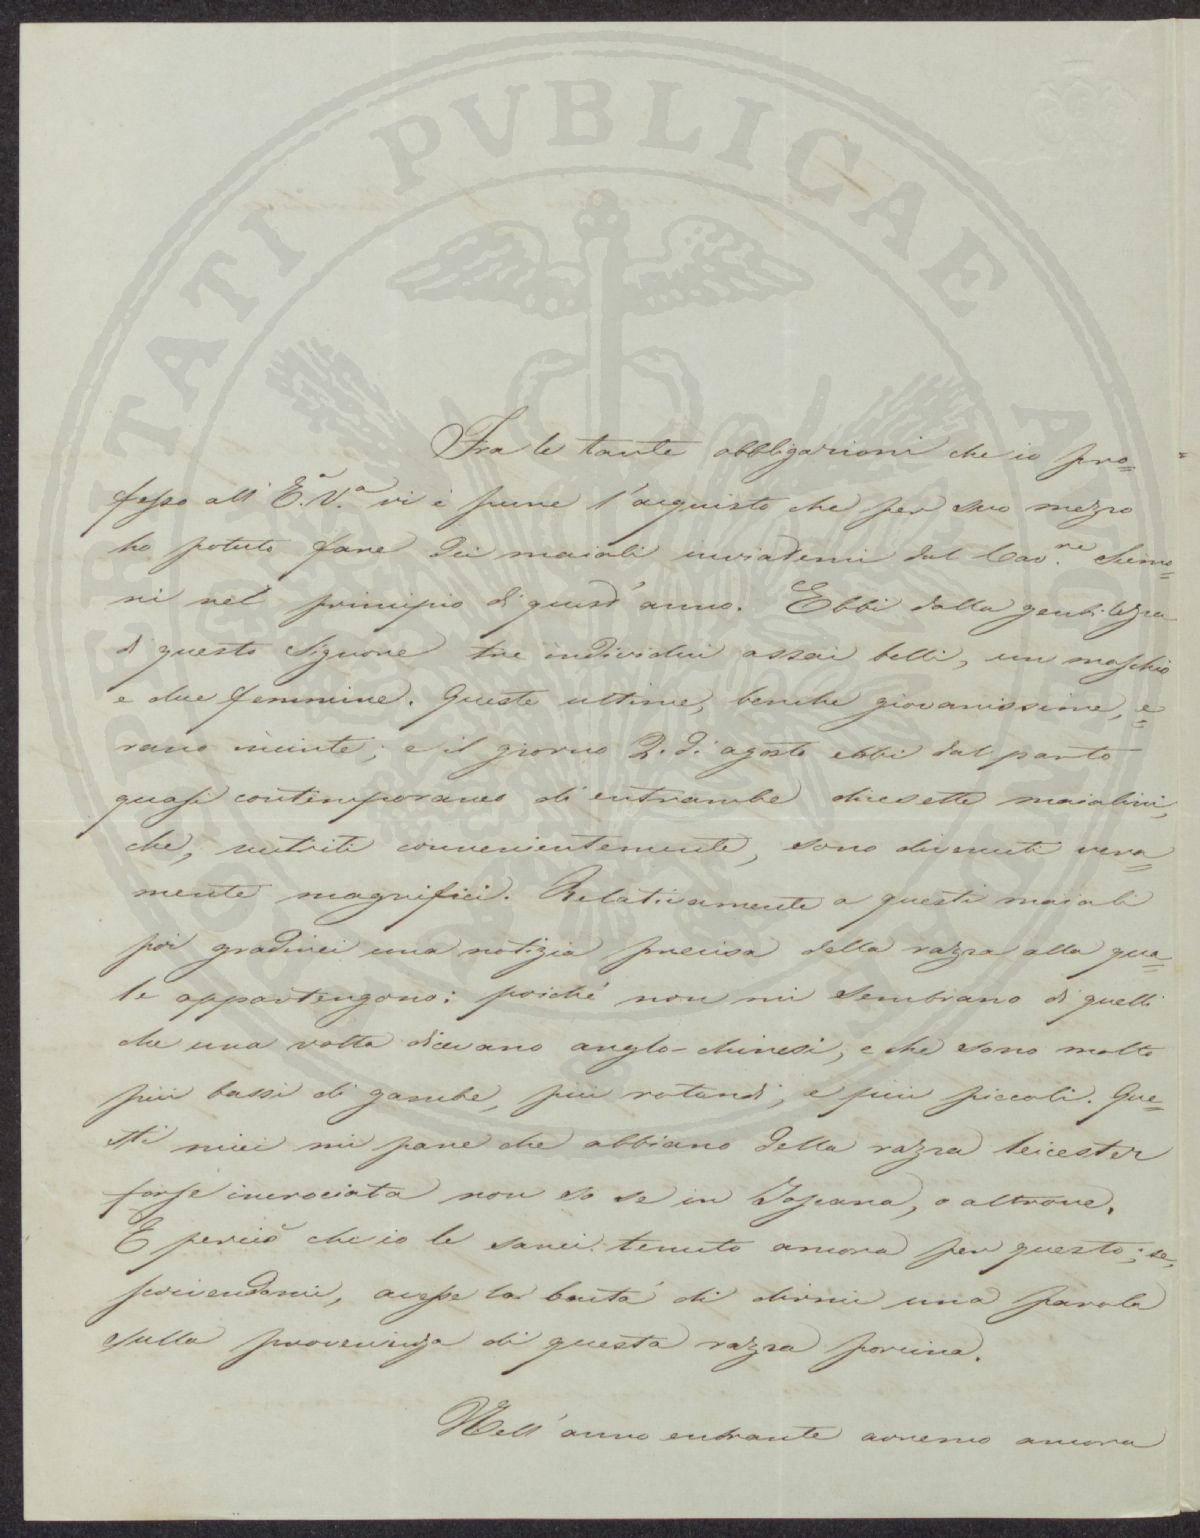 PROSPERITATI PVBLICAE AVGENDAE
Fra le tante obbligazioni che io pro=
fesso all' E.ª V.ª vi è pure l'acquisto che per suo mezzo
ho potuto fare dei maiali inviatemi dal Cav.re
ni nel principio di quest'anno. Ebbi dalla gentilezza
di questo Signore tre individui assai belli, un maschio
e due femmine. Queste ultime, benche giovanissime, e=
rano incinte; e il giorno 2. di agosto ebbi dal parto
quasi contemporaneo di entrambe diciesette maialini,
che, nutriti convenientemente, sono divenuti vera=
mente magnifici. Relativamente a questi maiali
poi gradirei una notizia precisa della razza alla qua=
le appartengono: poiché non mi sembrano di quelli
che una volta dicevano anglo-chinesi, e che sono molto
più bassi di gambe, più rotondi, e più piccoli. Que=
sti miei mi pare che abbiano della razza leicester
forse incrociata non so se in Toscana, o altrove.
E perciò che io le sarei tenuto ancora per questo; se,
scrivendomi, avesse la bontà di dirmi una parola
sulla provenienza di questa razza porcina.
Nell'anno entrante avremo ancora